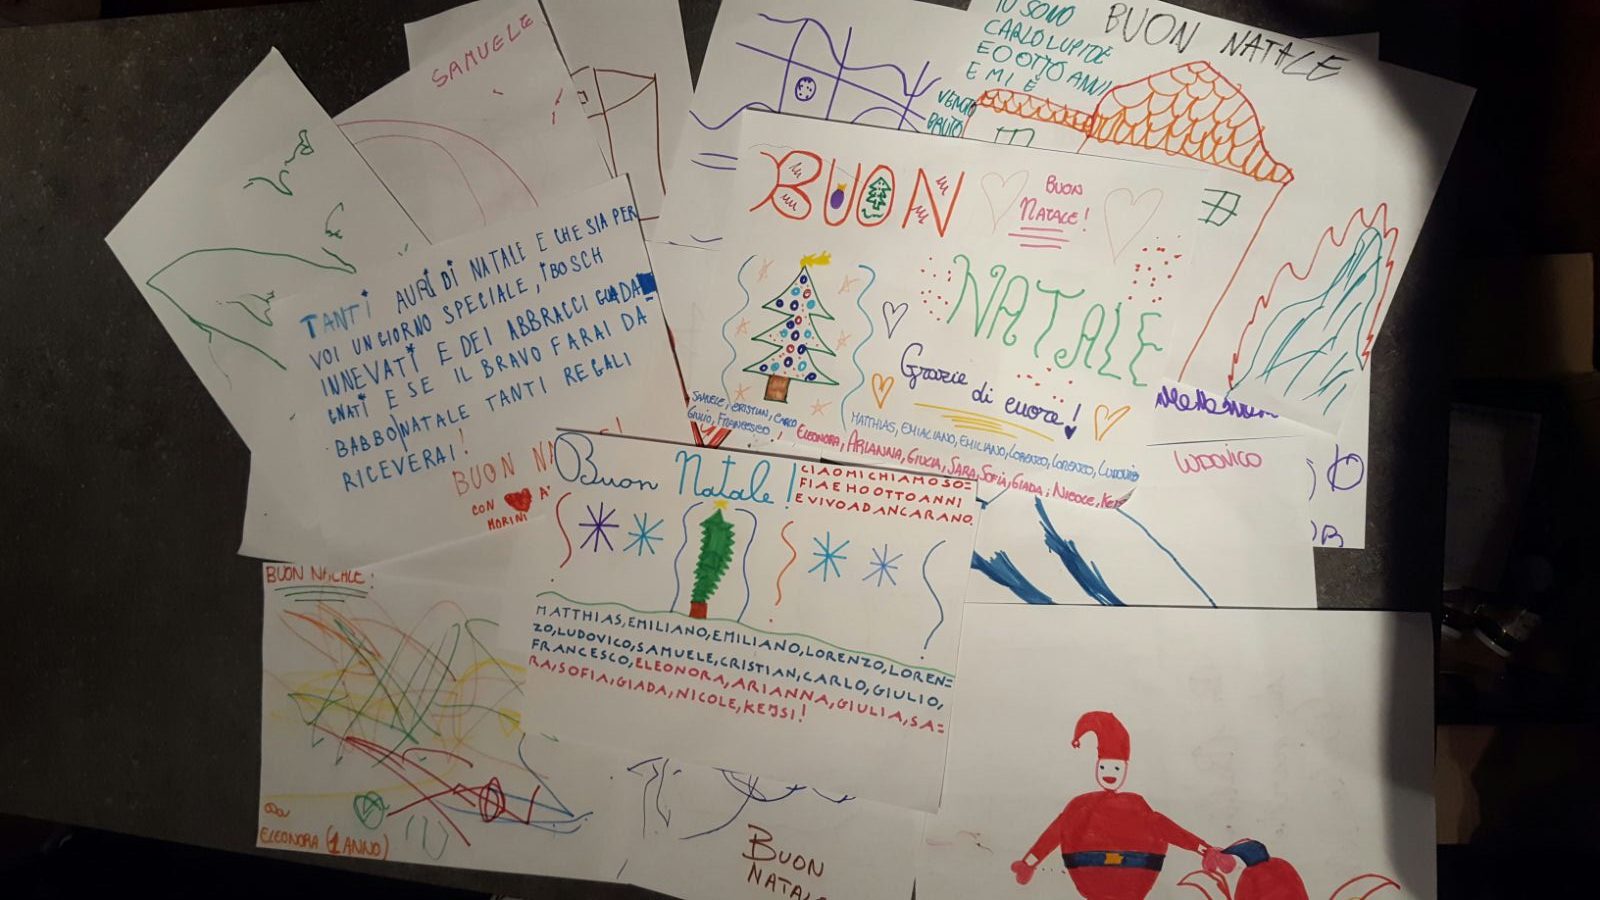 SAMUELE
IO SONO
CARLO LUPI DE
E O OTTO ANNI
E MI È
VENUTO
BRUTO
BUON NATALE
TANTI AURI DI NATALE E CHE SIA PER
VOI UN GIORNO SPECIALE, I BOSCH
INNEVATI E DEI ABBRACCI GUADA
GNATI E SE IL BRAVO FARAI DA
BABBO NATALE TANTI REGALI
RICEVERAI!
BUON NA
CON A
MORINI
BUON
BUON
NATALE!
NATALE
Grazie
di cuore!
SAMUELE, CRISTIAN, CARLO
GIULIO, FRANCESCO!
MATTHIAS, EMIALIANO, EMILIANO, LORENZO, LORENZO, LUDOVICO
ELEONORA, ARIANNA, GIUCIA, SARA, SOFIA, GIADA, NICOLE, KE
LUDOVICO
Buon Natale!
CIAO MI CHIAMO SO=
FIA E HO OTTO ANNI
E VIVO AD ANCARANO.
MATTHIAS, EMILIANO, EMILIANO, LORENZO, LOREN=
ZO, LUDOVICO, SAMUELE, CRISTIAN, CARLO, GIULIO,
FRANCESCO, ELEONORA, ARIANNA, GIULIA, SA=
RA, SOFIA, GIADA, NICOLE, KEJSI!
BUON NATALE!
ELEONORA (1 ANNO)
BUON
NATALE